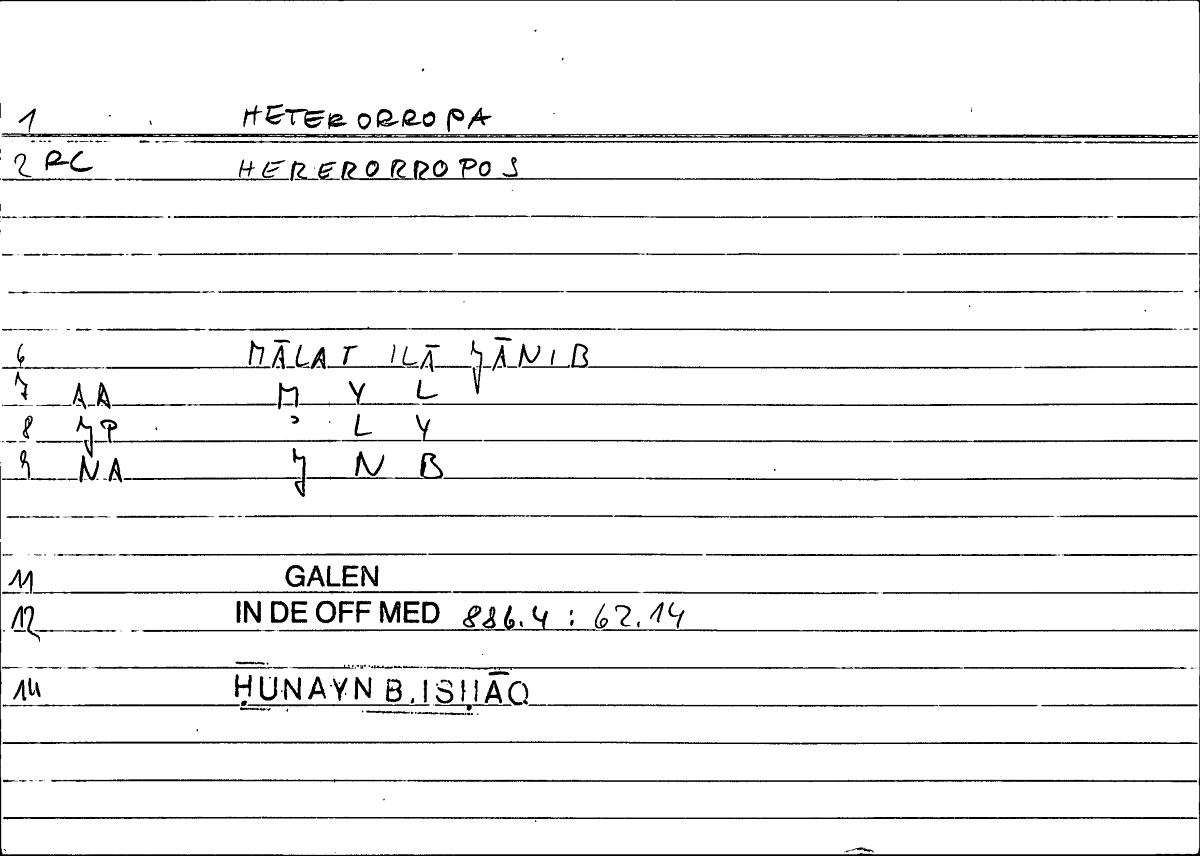 1 HETERORROPA
2 RC HERERORROPOS
6 MĀLAT ILĀ JĀNIB
7 AA M Y L
8 JP ʾ L Y
9 NA J N B
11 GALEN
12 IN DE OFF MED 886.4 : 62.14
14 ḤUNAYN B. ISḤĀQ